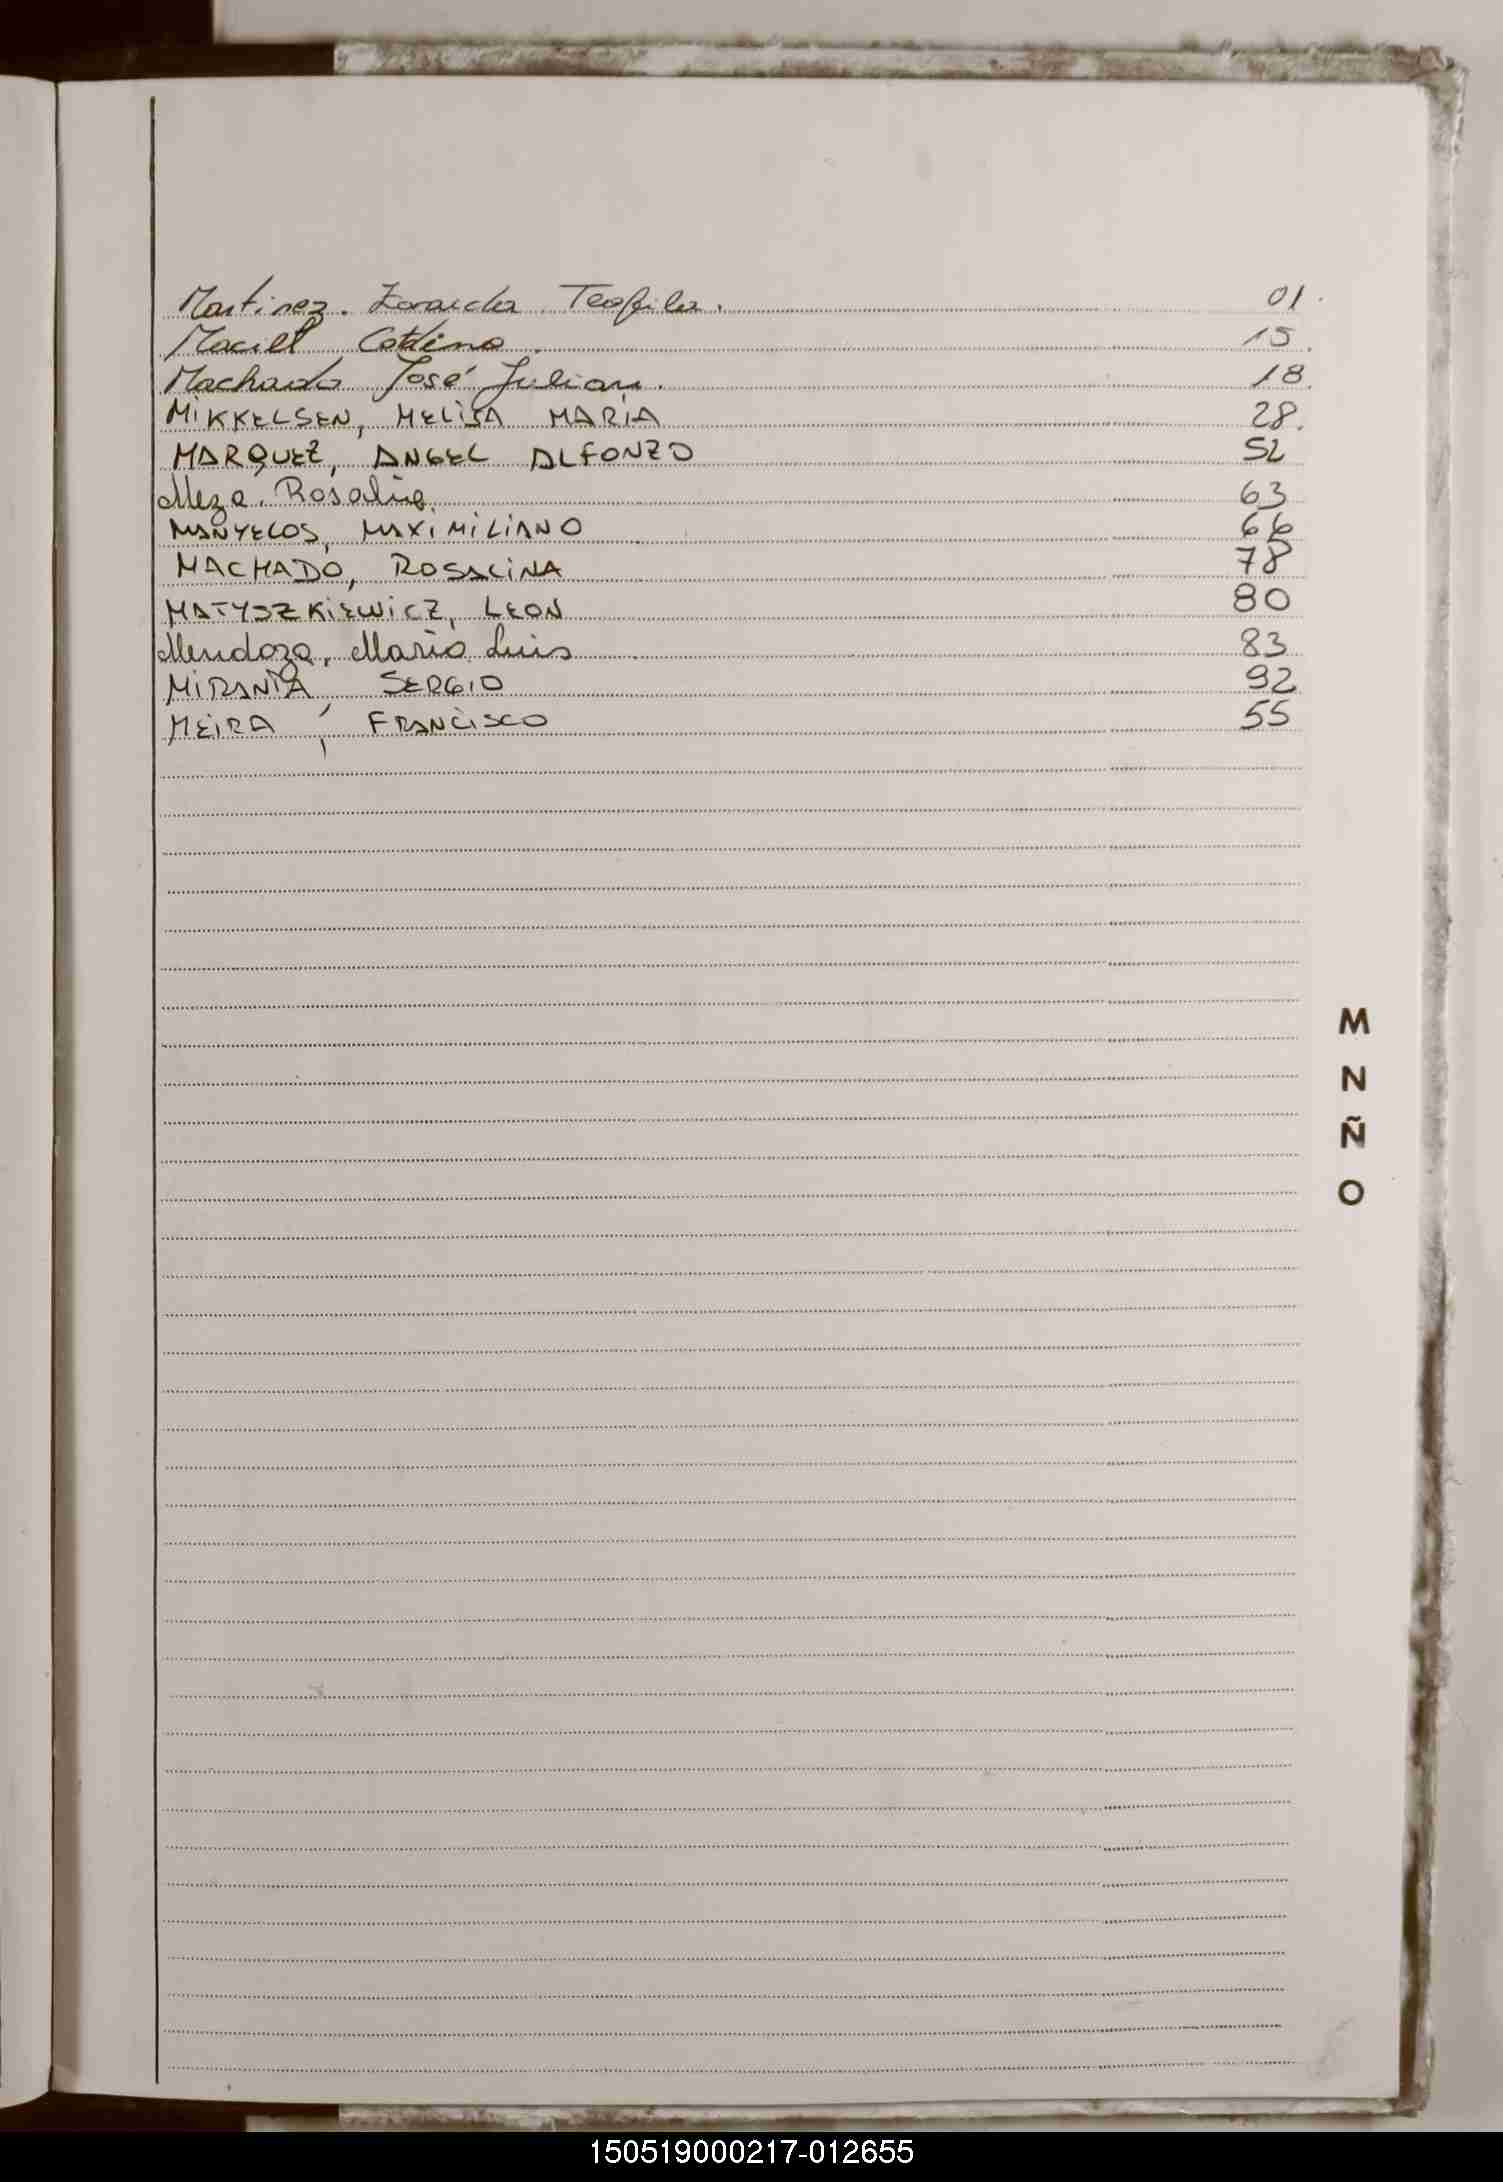 Martinez. Zoraida Teofila. 01.
Maciel Catalino. 15.
Machado José Julian. 18.
MIKKELSEN, MELISA MARIA 28.
MARQUEZ, ANGEL ALFONZO 52
Meza, Rosalia 63
MANYELOS, MAXIMILIANO 66
MACHADO, ROSALINA 78
MATYSZKIEWICZ, LEON 80
Mendoza, Mario Luis 83
MIRANTA, SERGIO 92
MEIRA, FRANCISCO 55
M
N
Ñ
O
150519000217-012655